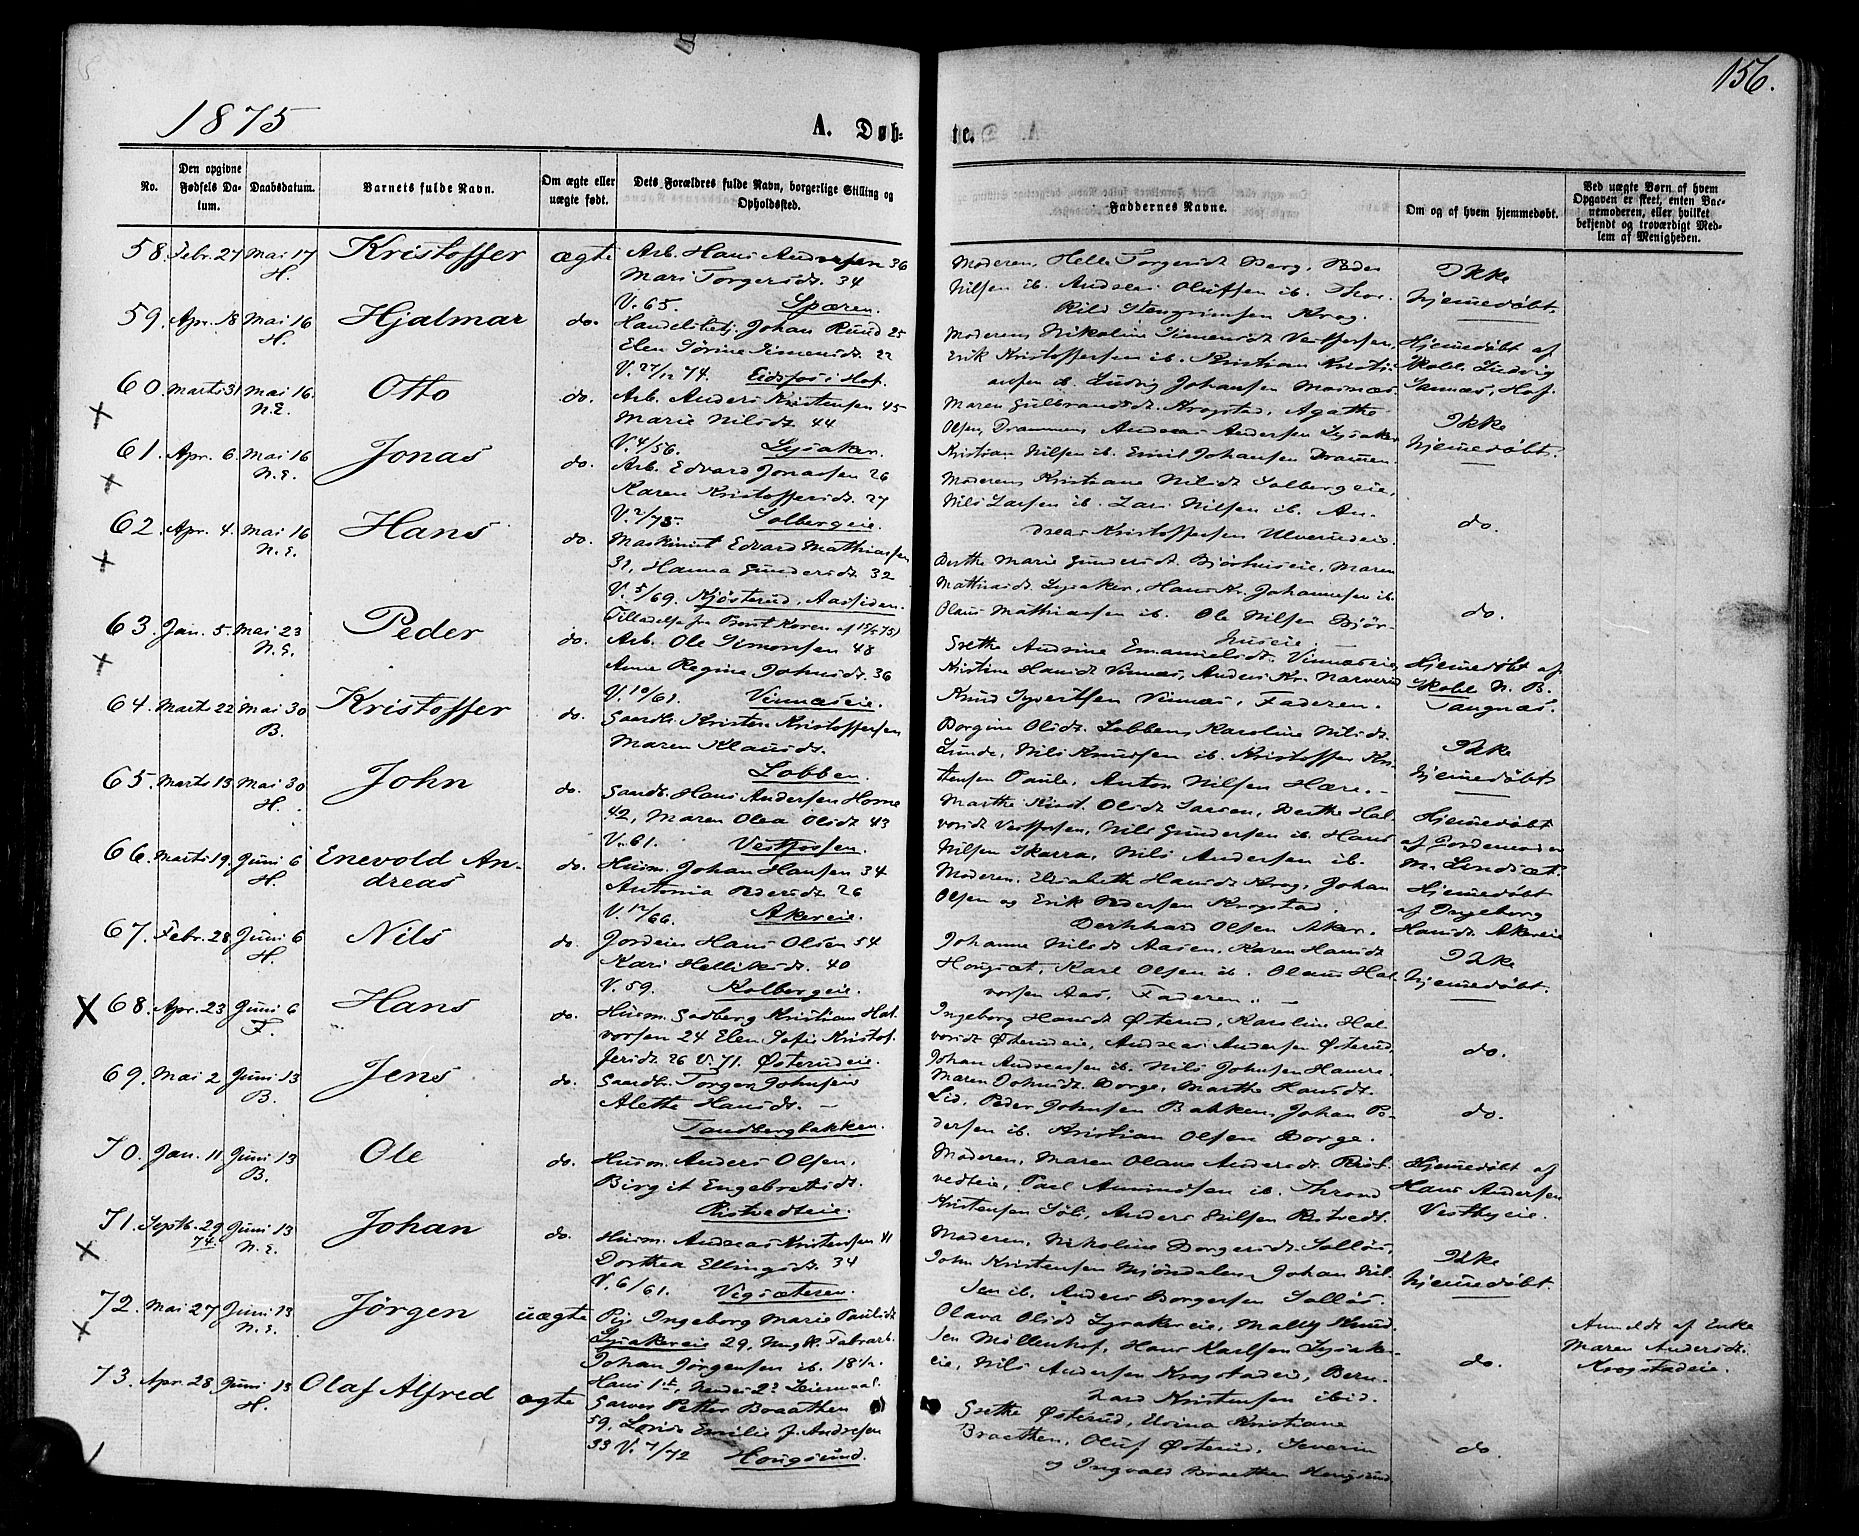 156.
1875
A. Døb-
te.
No.
Den opgivne Fødsels Da-
tum.
Daabsdatum.
Barnets fulde Navn.
Om ægte eller
uægte født.
Dets Forældres fulde Navn, borgerlige Stilling og
Opholdssted.
Faddernes Navne.
Om og af hvem hjemmedøbt.
Ved uægte Børn af hvem
Opgaven er skeet, enten Bar-
nemoderen, eller hvilket
bekjendt og troværdigt Med-
lem af Menigheden.
58. Febr. 27 Mai 17 H. Kristoffer ægte
Arb. Hans Andersen 36
Mari Torgersdt. 34
V. 65. Spæren.
Moderen, Helle Torgersdt Berg, Peder
Nilsen ib. Andreas Oluffsen ib. Thor-
Krog.
Ikke
hjemmedøbt.
59. Apr. 18 Mai 16 H. Hjalmar do.
Handelsbetj. Johan Ruud 25
Elen Sørine Simensdt. 22
V. 27/12 74. Eidsfos i Hof.
Moderen, Nikoline Simensdt Vestfossen,
Erik Kristoffersen ib. Kristian Kristi-
ansen ib. Ludvig Johansen
Hjemmedøbt af
Skoll. Ludvig
Hof.
60. Marts 31 Mai 16. N.E. Otto do.
Arb. Anders Kristensen 45
Marie Nilsdt. 44
V. 4/56. Lysaker.
Maren Gulbrandsdt. Krogstad, Agathe
Olsen, Drammen, Andreas Andersen Lysaker
Kristian Nilsen ib. Emil Johansen Drammen.
Ikke
hjemmedøbt.
61. Apr. 6. Mai 16 N.E. Jonas do.
Arb. Edvard Jonassen 26
Karen Kristoffersdt. 27
V. 2/73. Solbergeie.
Moderen, Kristiane Nilsdt Solbergeie,
Nils Larsen ib. Lars Nilsen ib. An-
dreas Kristoffersen
do.
62. Apr. 4. Mai 16 N.E. Hans do.
Maskinist Edvard Mathiassen
31, Hanna Gundersdt. 32
V. 5/69. Kjøsterud, Aassiden.
Tilladelse fra Provst Koren af 15/5 75)
Berthe Marie Gundersdt. Bjørhuseie, Maren
Mathiasdt Lysaker, Hans Kr. Johannesen ib.
Olaus Mathiassen ib. Ole Nilsen Bjør-
huseie.
do.
63. Jan. 5. Mai 23 N.E. Peder do.
Arb. Ole Simonsen 48
Anne Regine Johnsdt. 36
V. 10/61. Vinnæseie.
Grethe Andrine Emanuelsdt. Vinnæseie,
Kristine Hansdt Vinnæs, Anders Kr. Narverud
Knud Syvertsen Vinnæs, Faderen.
Hjemmedøbt af
Skoll. N. B.
Tangnæs.
64. Marts 22 Mai 30 B. Kristoffer do.
Gaardb. Kristen Kristoffersen
Maren Klausdt.
Lobben.
Borgine Olsdt. Lobben, Karoline Nilsdt.
Lunde, Nils Knudsen ib. Kristoffer Kri-
stensen Paule, Anton Nilsen Hære.
Ikke
hjemmedøbt
65. Marts 13 Mai 30 H. John do.
Gaardb. Hans Andersen Horne
42, Maren Olea Olsdt 43
V. 61. Vestfossen.
Marthe Olsdt Berthe Hal-
vorsdt Vestfossen, Nils Gundersen ib. Hans
Nilsen Skarra, Nils Andersen ib.
Hjemmedøbt
af Jordemoder
M. Lindsæt.
66. Marts 19. Juni 6 H. Enevold An-
dreas do.
Husm. Johan Hansen 34
Antonia Pedersdt 26
V. 12/66. Akereie.
Moderen, Elisabeth Hansdt Krog, Johan
Olsen og Erik Pedersen Krogstad.
Olsen Aker.
Hjemmedøbt
af Ingeborg
Hansdt. Akereie
67. Febr. 28 Juni 6 H. Nils do.
Jordeier Hans Olsen 54
Kari Helliksdt. 40
V. 59. Kolbergeie.
Johanne Nilsdt Aasen, Karen Hansdt
Hougsæt, Karl Olsen ib. Olaus Hal-
vorsen Aas, Faderen.
Ikke
hjemmedøbt.
68. Apr. 23 Juni 6 F. Hans do.
Husm. Kristian Hal-
vorsen 24 Elen Sofie Kristof-
fersdt 26 V. 71. Østerudeie.
Ingeborg Hansdt Østerud, Karoline Hal-
vorsdt Østerudeie, Andreas Andersen Østerud,
Johan Andreassen ib. Nils Johnsen
do.
69. Mai 2 Juni 13 B. Jens do.
Gaardb. Torger Johnsen
Alette Hansdt.
Sandbergbakken.
Maren Johnsdt. Borge, Marthe Hansdt.
Lid, Peder Johnsen Bakken, Johan Pe-
dersen ib. Kristian Olsen Borge.
do.
70. Jan. 11 Juni 13 B. Ole do.
Husm. Anders Olsen,
Birgit Engebretsdt.
Ristvedteie.
Moderen, Maren Olava Andersdt. Rist-
vedteie, Paul Amundsen ib. Thrond
Kristensen Søli, Anders Nilsen Ristvedt.
Hjemmedøbt af
Hans Andersen
Vestbyeie.
71. Septb. 29 74. Juni 13 N.E. Johan do.
Husm. Andreas Kristensen 41
Dorthea Ellingsdt. 34
V. 6/61. Vigsæteren.
Moderen, Nikoline Borgersdt. Solløs,
John Kristensen Mjøndalen, Johan Nil-
sen ib. Anders Borgersen Solløs.
Ikke
hjemmedøbt.
72. Mai 27 Juni 13 N.E. Jørgen uægte
Pige Ingeborg Marie Paulsdt
Lysakereie 29, Ungk. Fabrarb.
Johan Jørgensen ib. 18½.
Hans 1ste, hendes 2det Leiermaal.
Olava Olsdt Lysakereie, Mally Knud-
sen Møllenhof, Hans Karlsen Lysaker-
eie, Nils Andersen Krogstadeie, Bern-
hard Kristensen ibid.
do.
Anmeldt af Enke
Maren Andersdt.
Krogstadeie.
73. Apr. 28 Juni 13 H. Olaf Alfred ægte
Garver Petter Braathen
59, Lovise Emilie f. Andresen
33 V. 7/72 Hougsund.
Grethe Østerud, Elvina Kristiane
Braathen, Oluf Østerud, Severin
og Ingvald Braathen Hougsund.
do